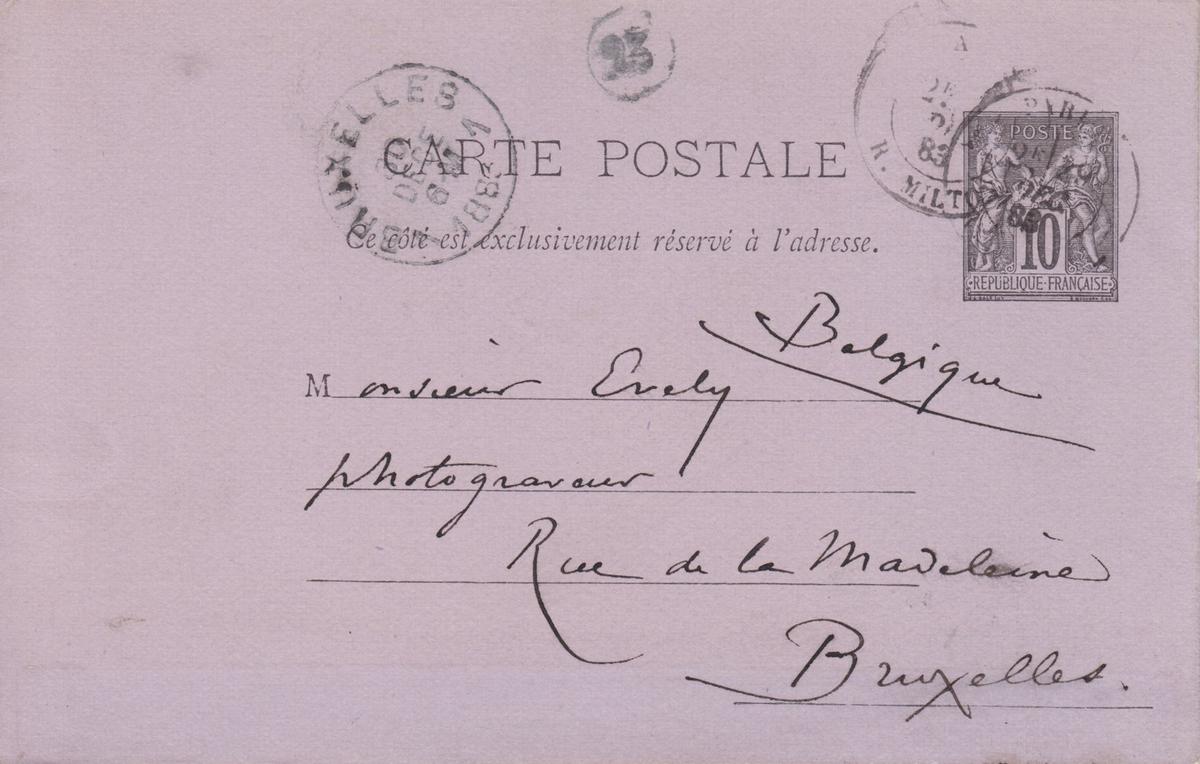 23
BRUXELLES 1
DEC
6
1883
PARIS
R. MILTON
DEC
83
POSTE
10
REPUBLIQUE FRANÇAISE
CARTE POSTALE
Ce côté est exclusivement réservé à l'adresse.
Belgique
Monsieur Evely
photograveur
Rue de la Madeleine
Bruxelles.